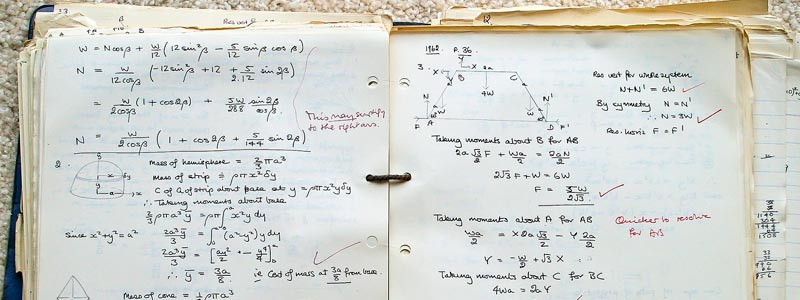 33
β
W = N cosβ + W/12 (12 sin²β − 5/12 sinβ cosβ)
N = W/12cosβ (−12 sin²β + 12 + 5/2.12 sin 2β)
= W/2cosβ (1 + cos2β) + 5W/288 sin2β/cosβ
This may simplify
to the right ans.
N = W/2cosβ (1 + cos2β + 5/144 sin 2β)
2.
Mass of hemisphere = 2/3 πρa³
Mass of strip ≑ ρπx²δy
C of G of strip about base at y = ρπx²yδy
∴ Taking moments about base
2/3 ρπa³ȳ = ρπ∫x²y dy
Since x² + y² = a²
2a³ȳ/3 = ∫(a²−y²)y dy
2a³ȳ/3 = [ay²/2 − y⁴/4]
∴ ȳ = 3a/8 ie C of mass at 3a/8 from base.
Mass of cone = 1/3 ρπa³
12.
1962 P. 36
3.
Y
X
X
2a
B
C
4W
N
N'
W
W
F
A
D
F'
Res vert for whole system
N + N' = 6W
By symmetry N = N'
∴ N = 3W
Res. horiz F = F'
Taking moments about B for AB
2a√3/2 F + Wa/2 = 2aN/2
2√3F + W = 6W
F = 5W/2√3
Quicker to resolve
for AB
Taking moments about A for AB
Wa/2 = X2a√3/2 − Y2a/2
Y = −W/2 + √3X ∴
Taking moments about C for BC
4Wa = 2aY